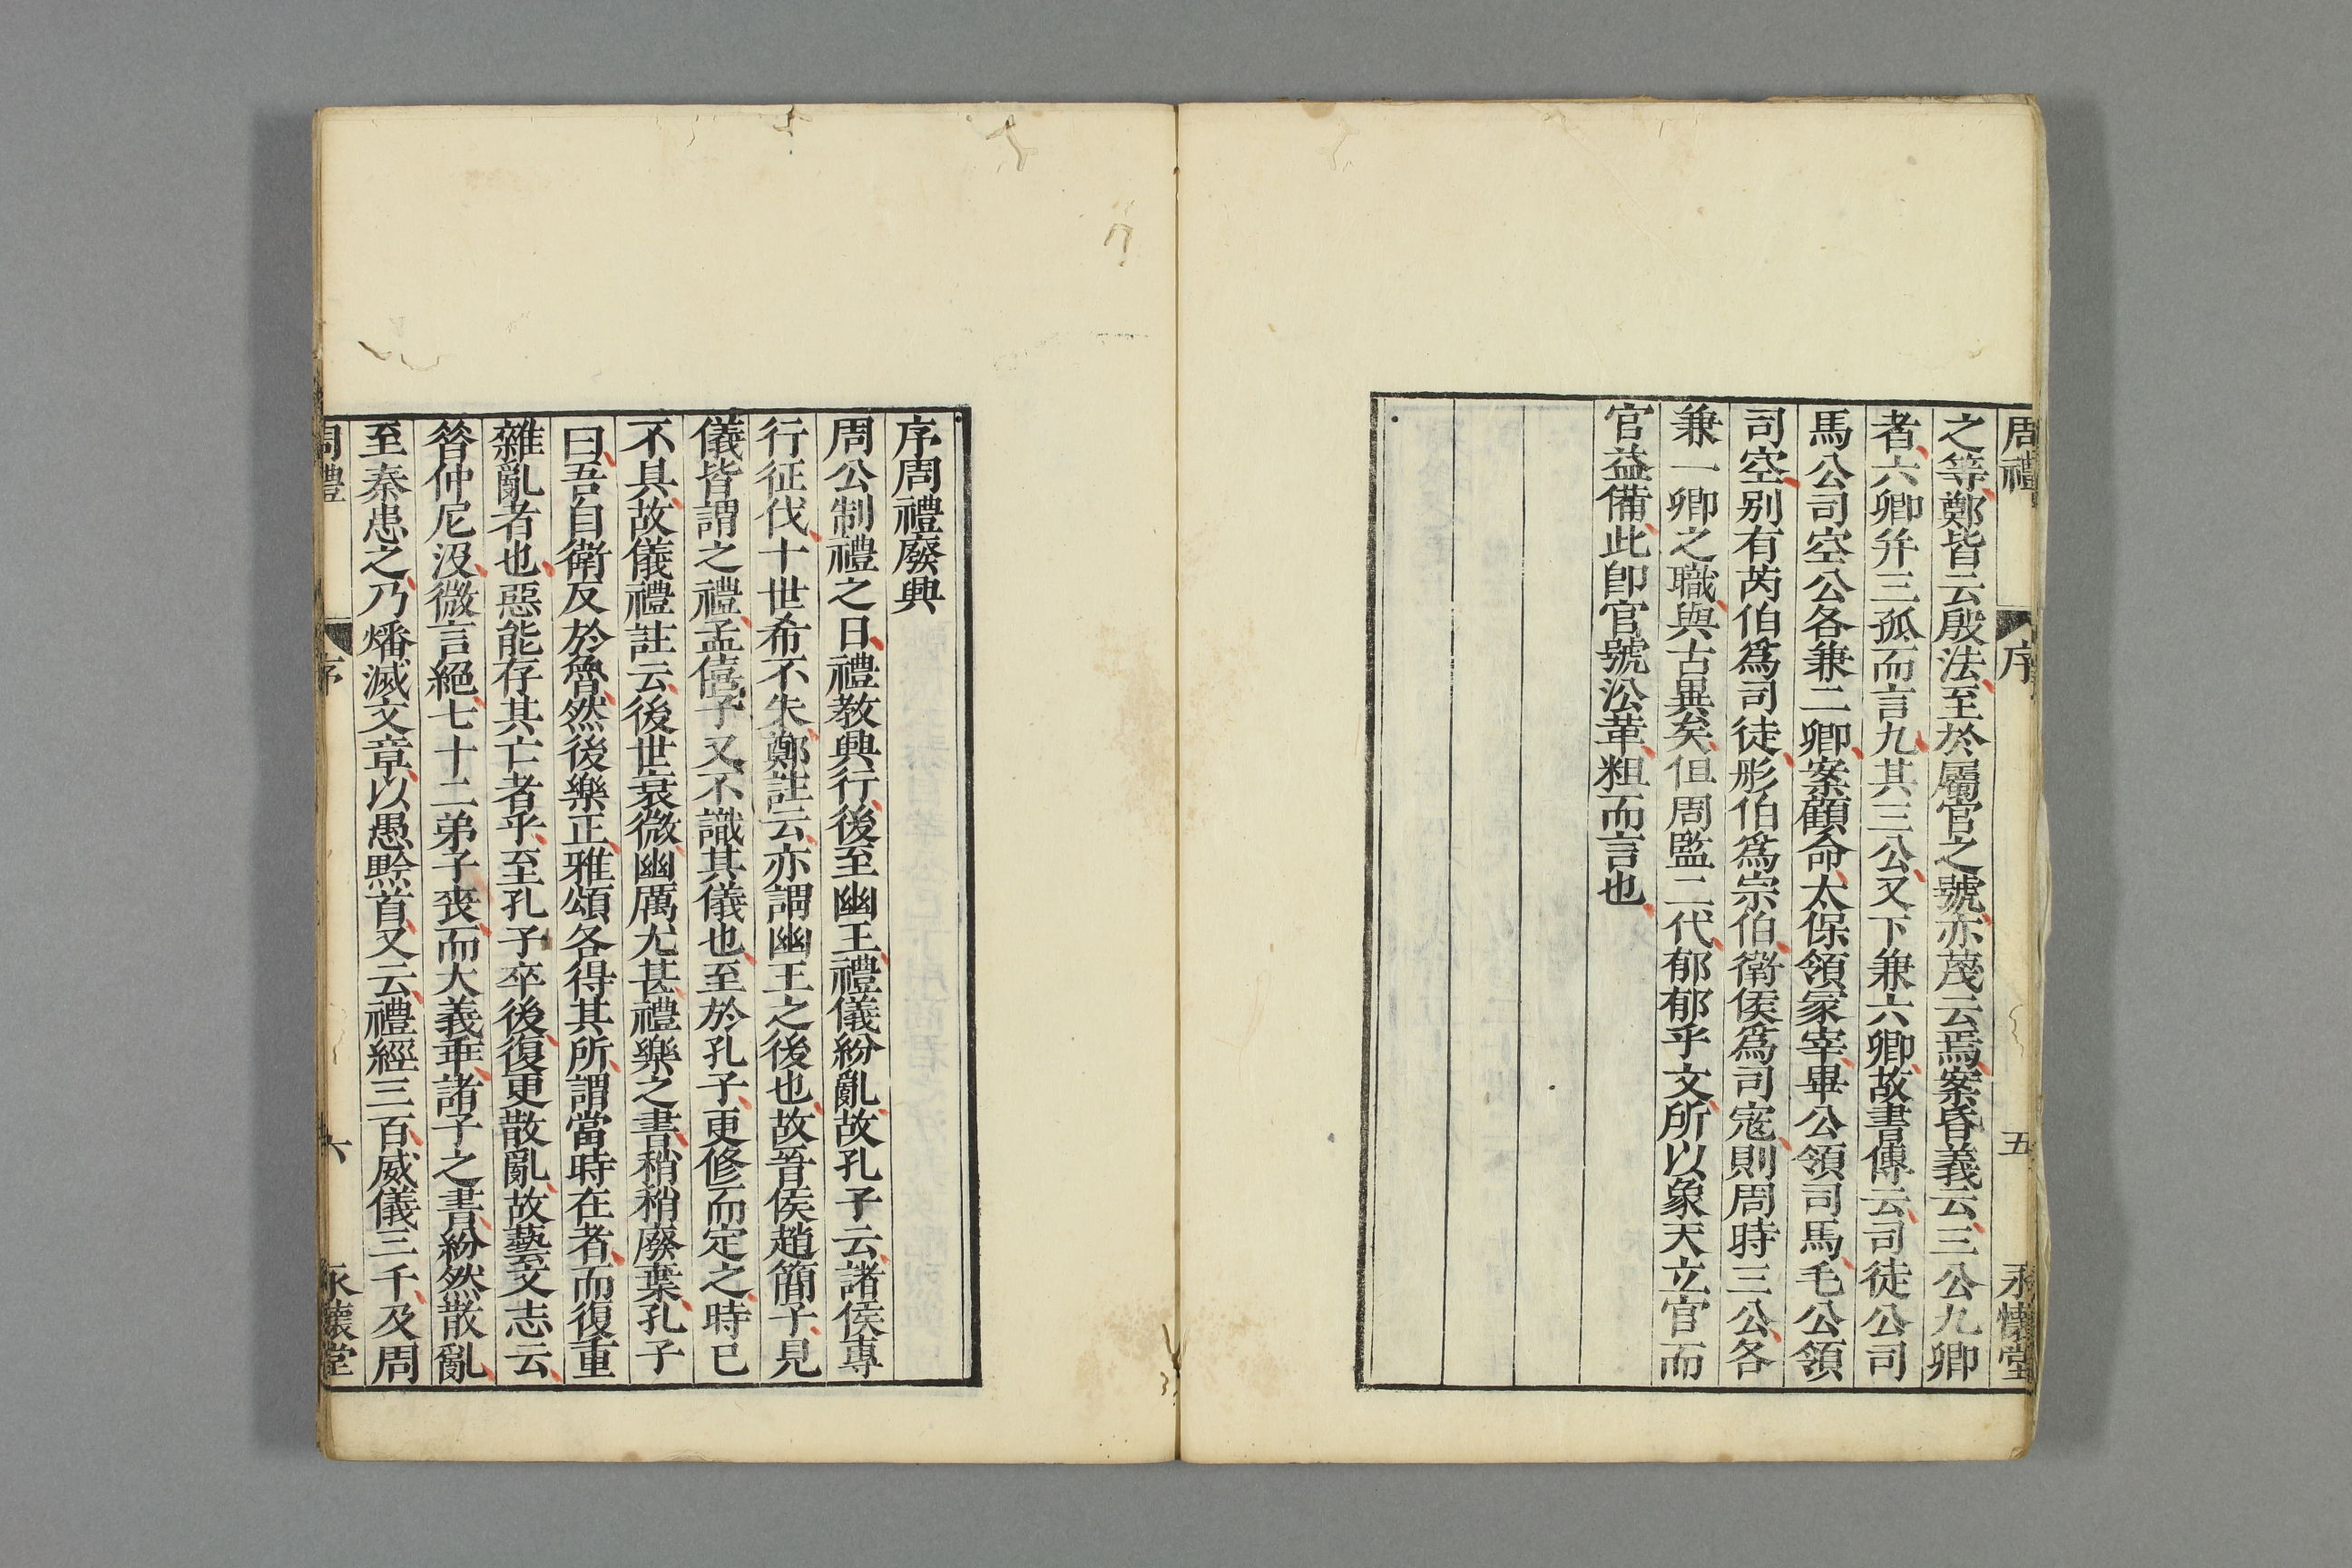 周禮 序 五 永懷堂
之等鄭皆云殷法至於屬官之號亦蔑云焉案昏義云三公九卿
者六卿幷三孤而言九其三公又下兼六卿故書傳云司徒公司
馬公司空公各兼二卿案顧命太保領冢宰畢公領司馬毛公領
司空别有芮伯爲司徒彤伯爲宗伯衛侯爲司寇則周時三公各
兼一卿之職與古異矣但周監二代郁郁乎文所以象天立官而
官益備此卽官號㳂革粗而言也
序周禮廢興
周公制禮之日禮教興行後至幽王禮儀紛亂故孔子云諸侯專
行征伐十世希不失鄭註云亦謂幽王之後也故晉侯趙簡子見
儀皆謂之禮孟僖子又不識其儀也至於孔子更修而定之時已
不具故儀禮註云後世衰微幽厲尤甚禮樂之書稍稍廢棄孔子
曰吾自衛反於魯然後樂正雅頌各得其所謂當時在者而復重
雜亂者也惡能存其亡者乎至孔子卒後復更散亂故藝文志云
昝仲尼没微言絕七十二弟子喪而大義乖諸子之書紛然散亂
至秦患之乃燔滅文章以愚黔首又云禮經三百威儀三千及周
周禮 序 六 永懷堂